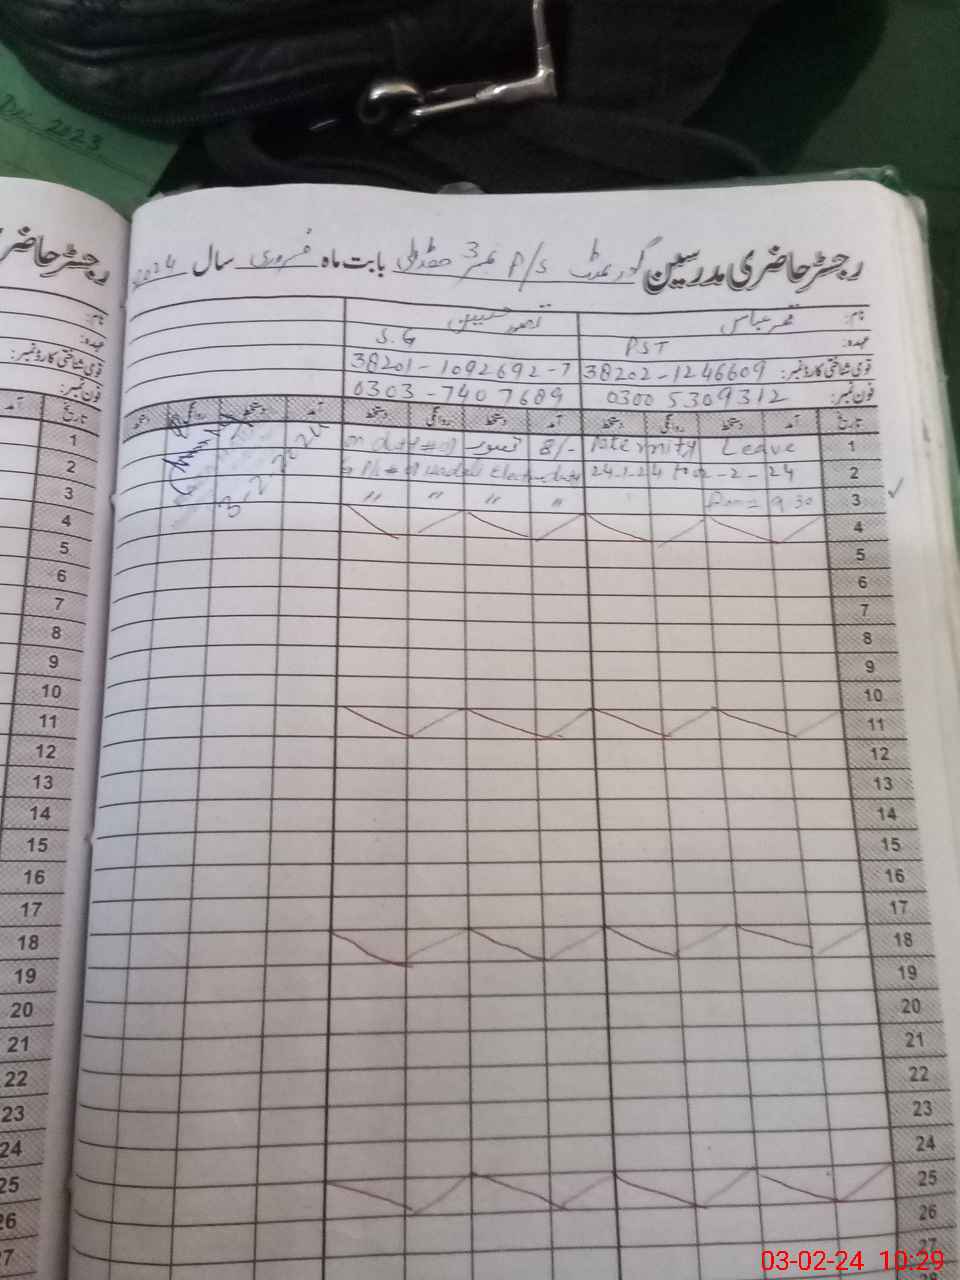 Dec 2023
رجسٹر حاضری مدرسین گورنمنٹ P/S نمبر 3 بابت ماہ فروری سال 2024
رجسٹر حاضر
نام: قمر عباس تصور حسین
عہدہ: PST S.G
قومی شناختی کارڈ نمبر: 38202-1246609 38201-1092692-7
فون نمبر: 0300 5309312 0303-7407689
تاریخ آمد دستخط روانگی دستخط آمد دستخط روانگی دستخط آمد دستخط روانگی دستخط
1 Paternity Leave 8/- تصور on duty #01
2 24-1-24 to 2-2-24
3 9:30 〃 〃 〃 〃
3-2-24
4
5
6
7
8
9
10
11
12
13
14
15
16
17
18
19
20
21
22
23
24
25
26
27
نام:
عہدہ:
قومی شناختی کارڈ نمبر:
فون نمبر:
تاریخ آمد
1
2
3
4
5
6
7
8
9
10
11
12
13
14
15
16
17
18
19
20
21
22
23
24
25
26
27
03-02-24 10:29